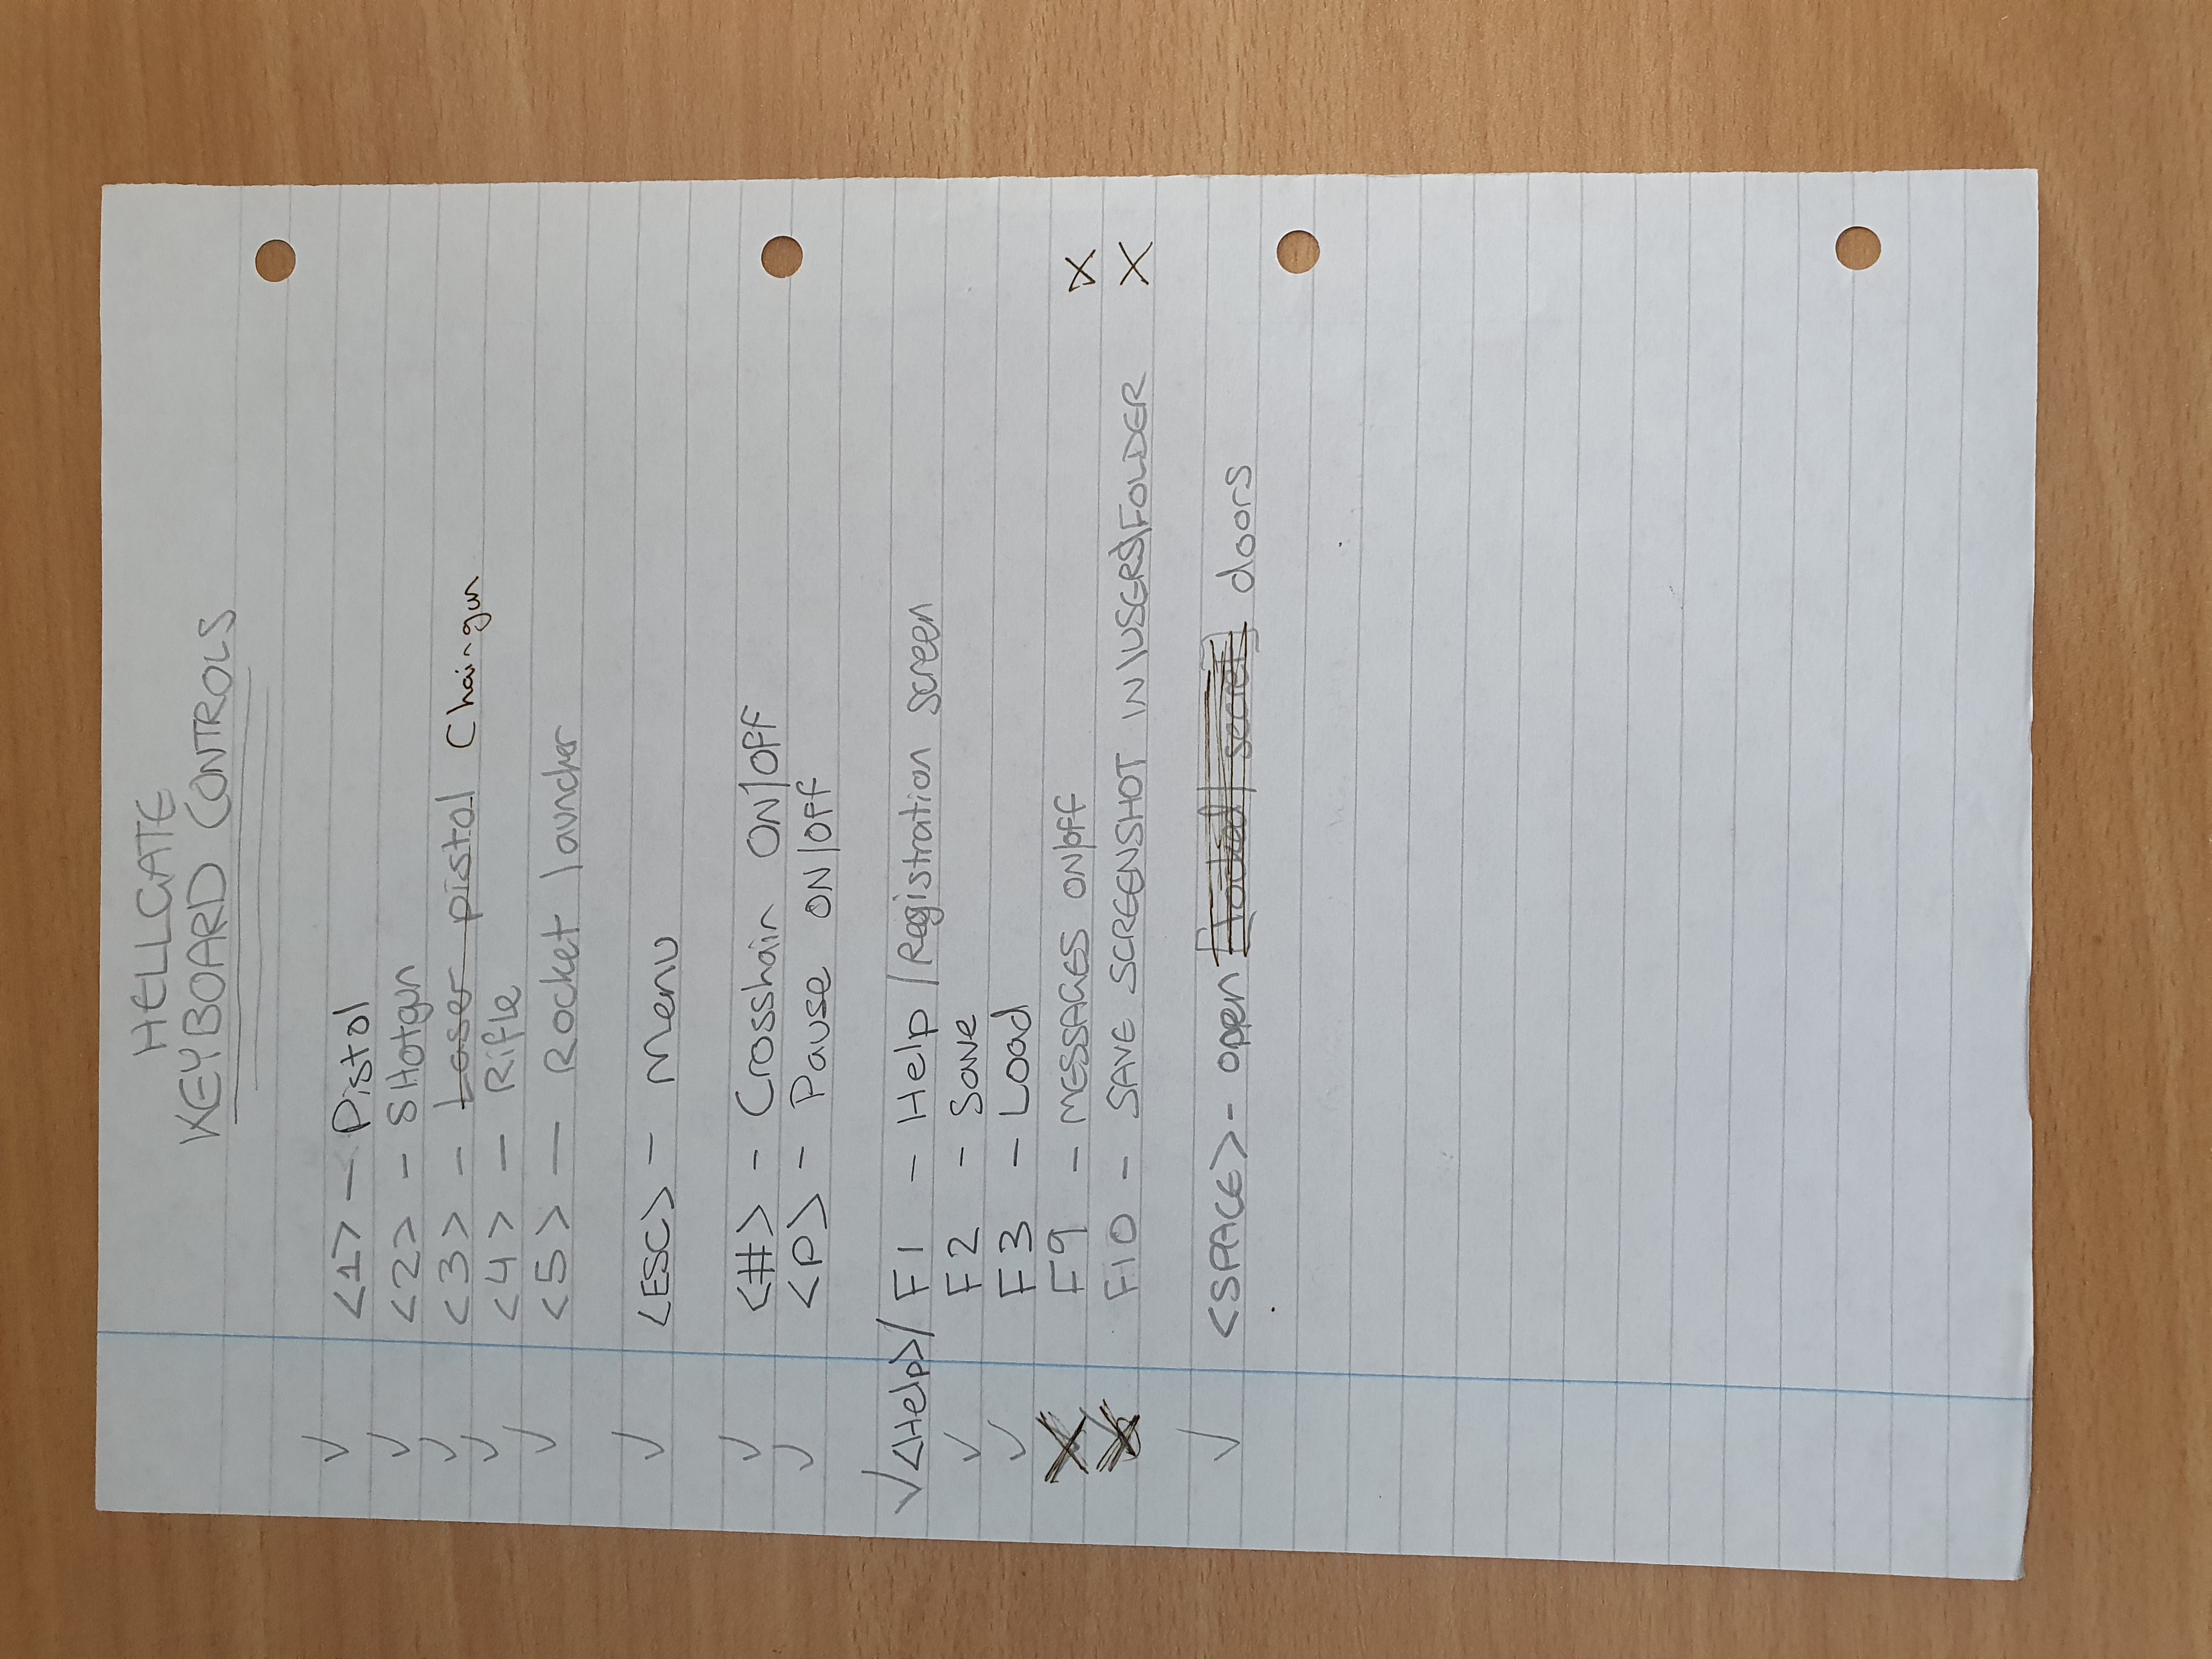 HELLGATE
KEYBOARD CONTROLS
✓ <1> - Pistol
✓ <2> - SHotgun
✓ <3> - Laser pistol Chaingun
✓ <4> - Rifle
✓ <5> - Rocket launcher
✓ <ESC> - Menu
✓ <#> - Crosshair ON/OFF
✓ <P> - Pause ON/OFF
✓ <Help>/ F1 - Help / Registration screen
✓ F2 - Save
✓ F3 - Load
X F9 - MESSAGES ON/OFF X
X F10 - SAVE SCREENSHOT IN \USERS\ FOLDER X
✓ <SPACE> - open [locked / secret] doors